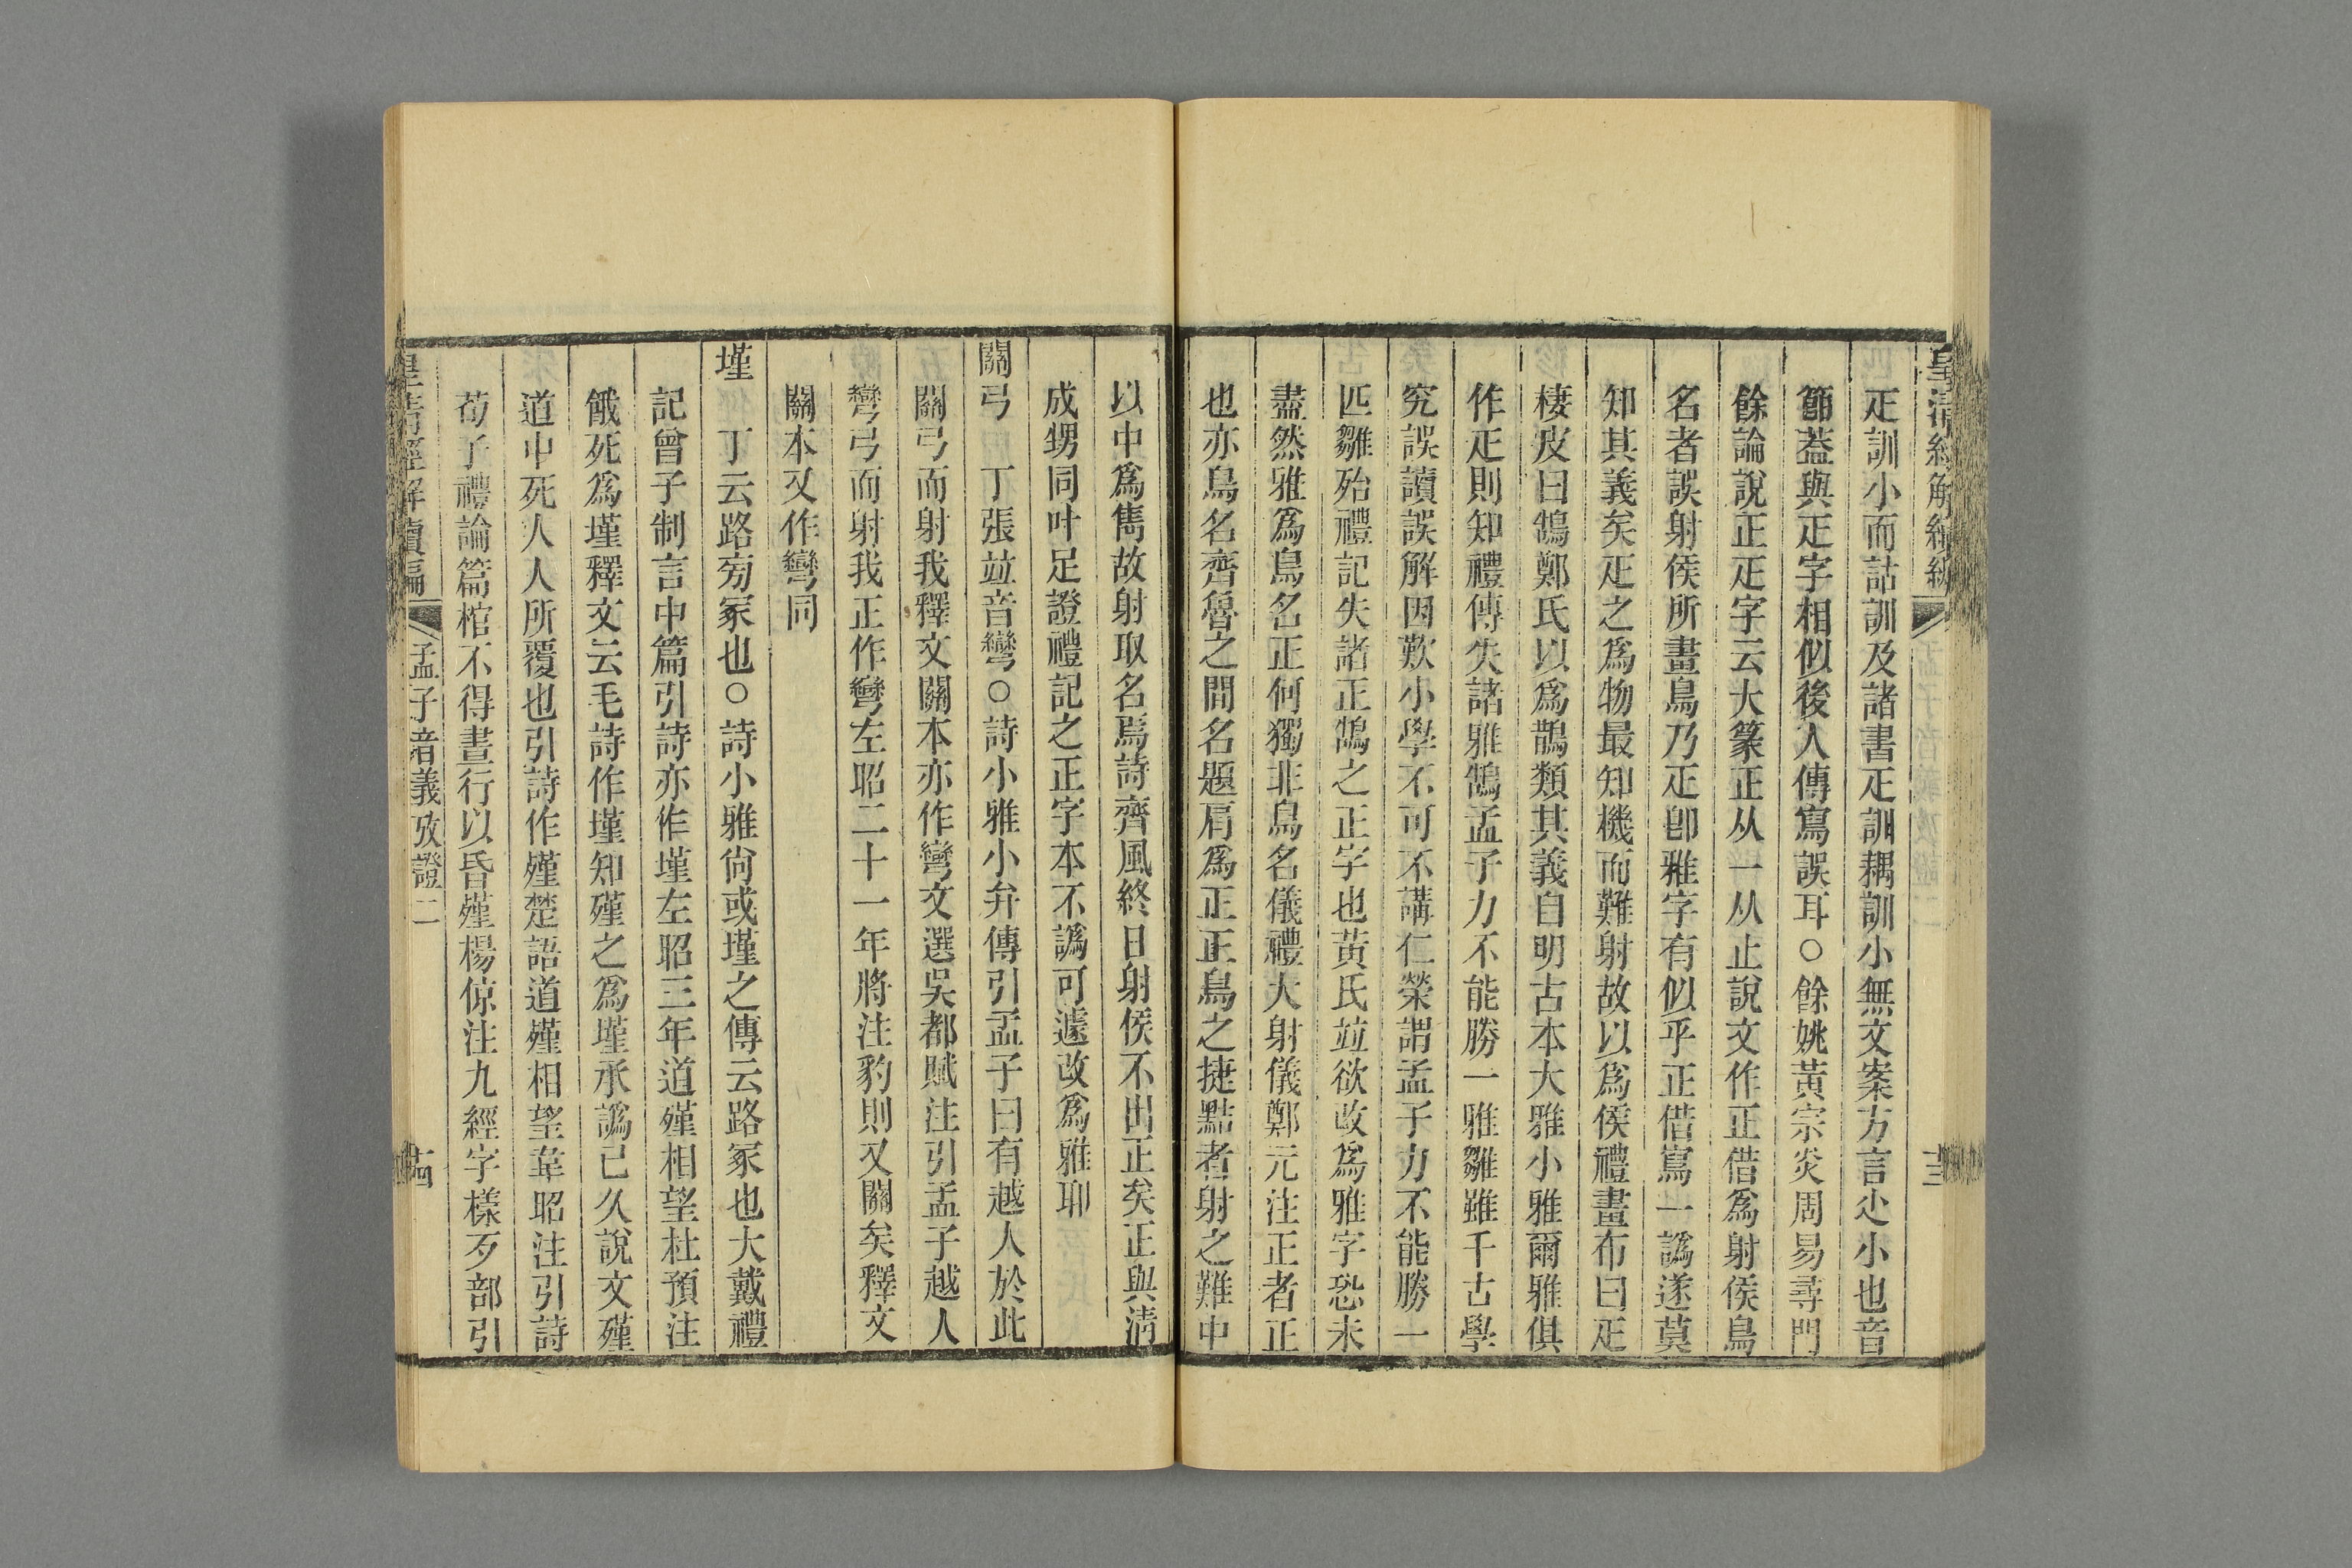 皇清經解續編
疋訓小而詁訓及諸書疋訓耦訓小無文案方言尐小也音
節葢與疋字相似後人傳寫誤耳○餘姚黃宗炎周易尋門
餘論說正疋字云大篆正从一从止說文作正借爲射侯鳥
名者誤射侯所畫鳥乃疋卽雅字有似乎正借寫一譌遂莫
知其義矣疋之爲物最知機而難射故以爲侯禮畫布曰疋
棲皮曰鵠鄭氏以爲鵲類其義自明古本大雅小雅爾雅俱
作疋則知禮傳失諸雅鵠孟子力不能勝一雅雛雖千古學
究誤讀誤解因歎小學不可不講仁榮謂孟子力不能勝一
匹雛殆禮記失諸正鵠之正字也黃氏竝欲改爲雅字恐未
盡然雅爲鳥名正何獨非鳥名儀禮大射儀鄭元注正者正
也亦鳥名齊魯之間名題肩爲正正鳥之捷黠者射之難中
以中爲雋故射取名焉詩齊風終日射侯不出正矣正與清
成甥同叶足證禮記之正字本不譌可遽改爲雅耶
關弓　丁張竝音彎○詩小雅小弁傳引孟子曰有越人於此
關弓而射我釋文關本亦作彎文選吳都賦注引孟子越人
彎弓而射我正作彎左昭二十一年將注豹則又關矣釋文
關本又作彎同
墐　丁云路旁冢也○詩小雅尙或墐之傳云路冢也大戴禮
記曾子制言中篇引詩亦作墐左昭三年道殣相望杜預注
餓死爲墐釋文云毛詩作墐知殣之爲墐承譌已久說文殣
道中死人人所覆也引詩作殣楚語道殣相望韋昭注引詩
荀子禮論篇棺不得晝行以昏殣楊倞注九經字樣歹部引
皇清經解續編
孟子音義攷證二